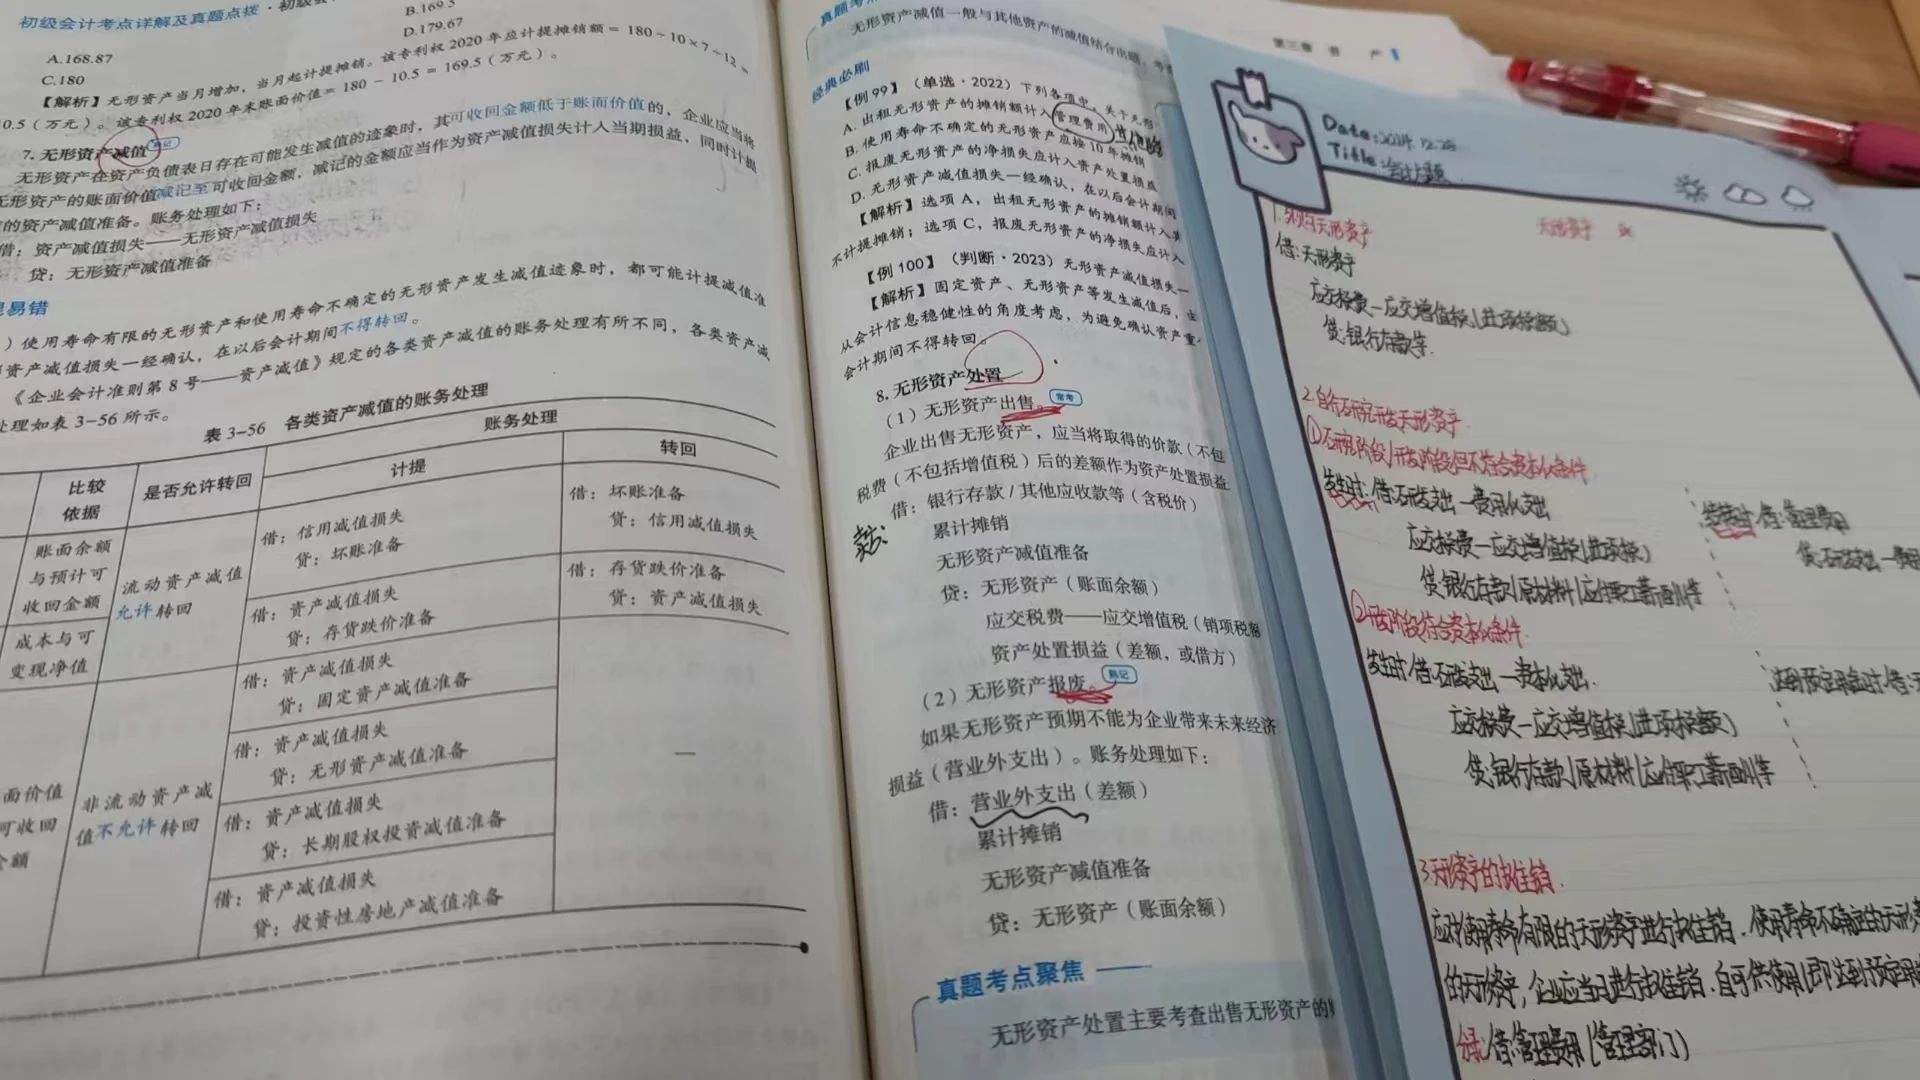 初级会计考点详解及真题点拨·初级会
A.168.87
B.169.5
C.180
D.179.67
【解析】无形资产当月增加，当月起计提摊销。该专利权2020年应计提摊销额=180÷10×7÷12=
0.5（万元）。该专利权2020年末账面价值=180-10.5=169.5（万元）。
7.无形资产减值
无形资产在资产负债表日存在可能发生减值的迹象时，其可收回金额低于账面价值的，企业应当将
无形资产的账面价值减记至可收回金额，减记的金额应当作为资产减值损失计入当期损益，同时计提
的资产减值准备。账务处理如下：
借：资产减值损失——无形资产减值损失
贷：无形资产减值准备
易错
）使用寿命有限的无形资产和使用寿命不确定的无形资产发生减值迹象时，都可能计提减值准
资产减值损失一经确认，在以后会计期间不得转回。
《企业会计准则第8号——资产减值》规定的各类资产减值的账务处理有所不同，各类资产减
处理如表3-56所示。
表3-56 各类资产减值的账务处理
比较依据
是否允许转回
账务处理
计提
转回
账面余额与预计可收回金额
流动资产减值允许转回
借：信用减值损失
贷：坏账准备
借：坏账准备
贷：信用减值损失
成本与可变现净值
借：资产减值损失
贷：存货跌价准备
借：存货跌价准备
贷：资产减值损失
面价值
可收回
额
非流动资产减值不允许转回
借：资产减值损失
贷：固定资产减值准备
借：资产减值损失
贷：无形资产减值准备
—
借：资产减值损失
贷：长期股权投资减值准备
借：资产减值损失
贷：投资性房地产减值准备
真题考
无形资产减值一般与其他资产的减值结合出题，考
经典必刷
【例99】（单选·2022）下列各项中，关于无形
A.出租无形资产的摊销额计入管理费用
B.使用寿命不确定的无形资产应按10年摊销
C.报废无形资产的净损失应计入资产处置损益
D.无形资产减值损失一经确认，在以后会计期间
【解析】选项A，出租无形资产的摊销额计入其
不计提摊销；选项C，报废无形资产的净损失应计入
【例100】（判断·2023）无形资产减值损失一
【解析】固定资产、无形资产等发生减值后，
从会计信息稳健性的角度考虑，为避免确认资产重
会计期间不得转回。
8.无形资产处置
（1）无形资产出售。常考
企业出售无形资产，应当将取得的价款（不包
税费（不包括增值税）后的差额作为资产处置损益
借：银行存款/其他应收款等（含税价）
累计摊销
无形资产减值准备
贷：无形资产（账面余额）
应交税费——应交增值税（销项税额
资产处置损益（差额，或借方）
（2）无形资产报废。熟记
如果无形资产预期不能为企业带来未来经济
损益（营业外支出）。账务处理如下：
借：营业外支出（差额）
累计摊销
无形资产减值准备
贷：无形资产（账面余额）
真题考点聚焦
无形资产处置主要考查出售无形资产的
第三章 资 产
Date:
Title:
1.外购无形资产
借:无形资产
应交税费一应交增值税(进项税额)
贷:银行存款等.
2.自行研究开发无形资产.
①研究阶段/开发阶段但不符合资本化条件.
发生时:借:研发支出一费用化支出
应交税费一应交增值税(进项税)
贷:银行存款/原材料/应付职工薪酬等
借:管理费用
贷:研发支出一费用
②开发阶段符合资本化条件.
发生时:借:研发支出一资本化支出.
应交税费一应交增值税(进项税额)
贷:银行存款/原材料/应付职工薪酬等
达到预定用途时:借:无
3.无形资产的摊销.
应对使用寿命有限的无形资产进行摊销.使用寿命不确定的无形资
的无形资产,企业应当按月进行摊销.自可供使用(即达到预定用
借:管理费用(管理部门)